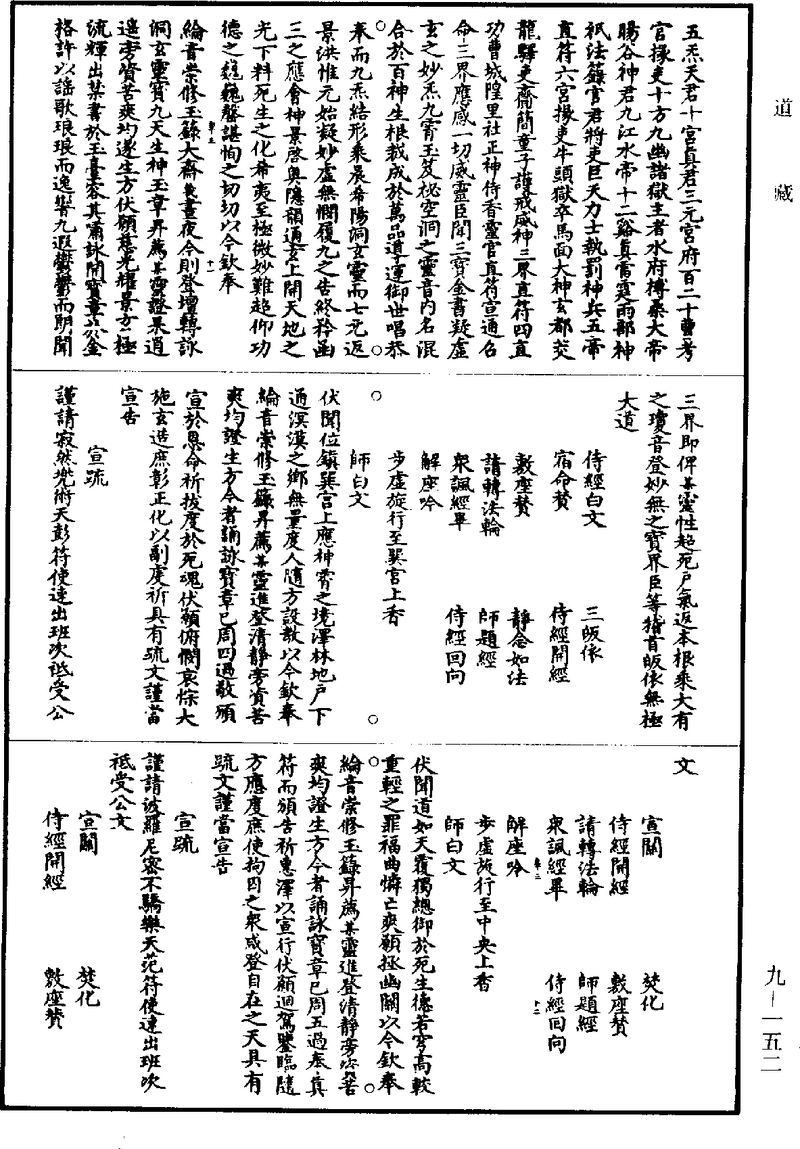 道藏
五炁天君十宮真君三元宮府百二十曹考
官掾吏十方九幽諸獄主者水府榑桑大帝
暘谷神君九江水帝十二谿真雷霆雨部神
祇法籙官君將吏巨天力士執罰神兵五帝
直符六宮掾吏牛頭獄卒馬面大神玄都茭
龍驛吏齋簡童子護戒威神三界直符四直
功曹城隍里社正神侍香靈官直符宣通召
命三界應感一切威靈臣聞三寶金書凝虛
玄之妙炁九霄玉笈祕空洞之靈音內名混
合於百神生根裁成於萬品道子運御世唱恭
奉而九炁結形乘晨希陽洞玄靈而七元返
景洪惟元始凝妙虛無憫履九之告終矜函
三之應會神景啓輿隱韻通玄上開天地之
光下料死生之化希夷至極微妙難趍仰功
德之巍巍罄諶恂之切切以今欽奉
綸音崇修玉籙大齋幾晝夜今則登壇轉詠
洞玄靈寶九天生神玉章昇薦某靈證果逍
遙旁資苦爽均遂生方伏願慈光耀景方極
流輝出某書於玉臺容其嘯詠開寶章於金
格許以謡歌琅琅而逸響九遐鬱鬱而朗聞
三界即俾某靈性超死戶氣返本根乘大有
之瓊音登妙無之寶界臣等稽首皈依無極
大道
侍經白文 三皈依
宿命贊 侍經開經
敷座贊 靜念如法
請轉法輪 師題經
衆諷經畢 侍經回向
解座吟
步虛旋行至巽宮上香
師白文
伏聞位鎮巽宮上應神霄之境澤林地戶下
通溟漠之鄉無量度人隨方設教以今欽奉
綸音崇修玉籙昇薦某靈進登清靜旁資苦
爽均證生方今者誦詠寶章已周四過敢頒
宣於恩命祈拔度於死魂伏願俯憫哀悰大
施玄造庶彰正化以副度祈具有疏文謹當
宣告
宣疏
謹請寂然兜術天彭符使速出班次祗受公
文
宣關 焚化
侍經開經 敷座贊
請轉法輪 師題經
衆諷經畢 侍經回向
解座吟
步虛旋行至中央上香
師白文
伏聞道如天覆獨總御於死生德若穹高較
重輕之罪福曲憐亡爽願拯幽關以今欽奉
綸音崇修玉籙昇薦某靈進登清靜旁資苦
爽均證生方今者誦詠寶章已周五過奉真
符而頒告祈惠澤以宣行伏願迴駕鑒臨隨
方應度庶使拘囚之衆咸登自在之天具有
疏文謹當宣告
宣疏
謹請波羅尼密不驕樂天范符使速出班次
祗受公文
宣關 焚化
侍經開經 敷座贊
九—一五二